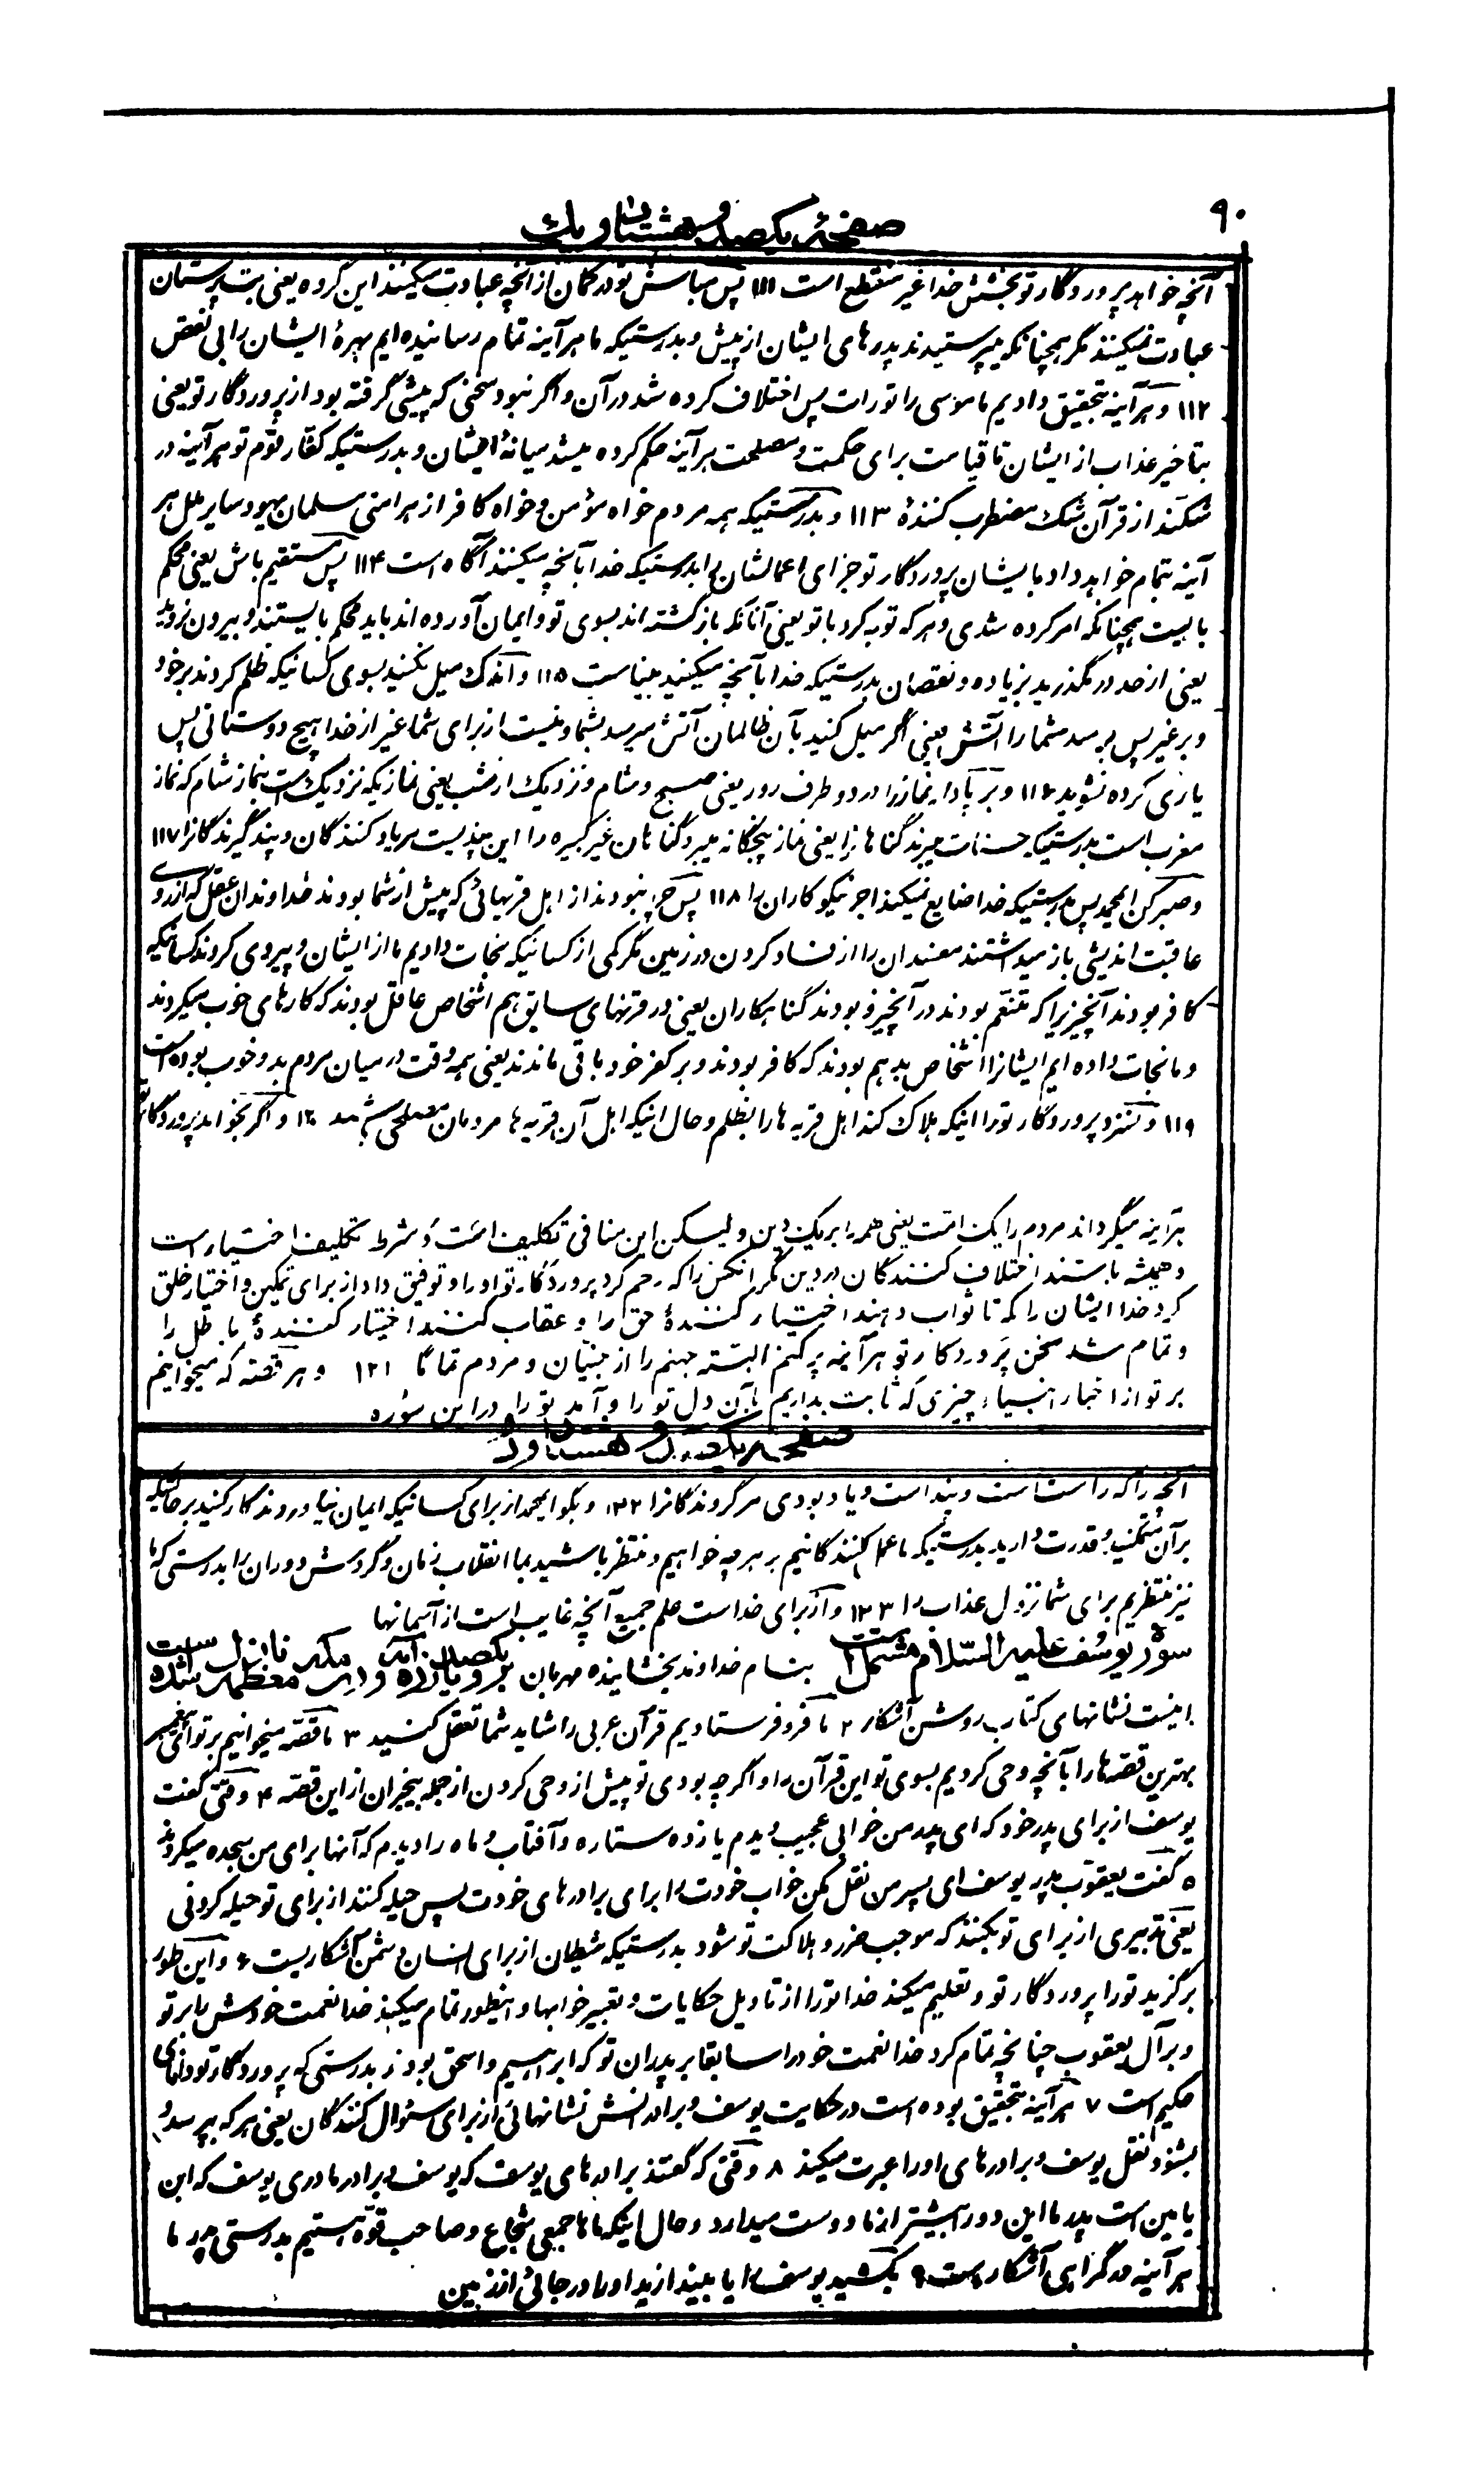 ۹۰
صفحهٔ یکصد و هشتاد و یک
آنچه خواهد پروردگار تو بخشش خدا غیر منقطع است ۱۱۱ پس مباش تو در گمان از آنچه عبادت میکنند این گروه یعنی بت پرستان
عبادت نمیکنند مگر همچنانکه میپرستیدند پدرهای ایشان از پیش و بدرستیکه ما هرآینه تمام رسانیده ایم بهرهٔ ایشان را بی نقص
۱۱۲ و هرآینه بتحقیق دادیم ما موسی را تورات پس اختلاف کرده شد در آن و اگر نبود سخنی که پیشی گرفته بود از پروردگار تو یعنی
بتاخیر عذاب از ایشان تا قیامت برای حکمت و مصلحت هرآینه حکم کرده میشد میانهٔ ایشان و بدرستیکه کفار قوم تو هرآینه در
شکند از قرآن شک مضطرب کنندهٔ ۱۱۳ و بدرستیکه همه مردم خواه مؤمن و خواه کافر از هر امتی مسلمان یهود سایر ملل هر
آینه بتمام خواهد داد بایشان پروردگار تو جزای اعمالشان را بدرستیکه خدا بآنچه میکنند آگاه است ۱۱۴ پس مستقیم باش یعنی محکم
بایست همچنانکه امر کرده شدی و هر که توبه کرد با تو یعنی آنانکه بازگشته اند بسوی تو و ایمان آورده اند باید محکم بایستند و بیرون نروید
یعنی از حد در نگذرید بزیاده و نقصان بدرستیکه خدا بآنچه میکنید بیناست ۱۱۵ و اندک میل نکنید بسوی کسانیکه ظلم کردند بر خود
و بر غیر پس برسد شما را آتش یعنی اگر میل کنید بآن ظالمان آتش میرسد بشما و نیست از برای شما غیر از خدا هیچ دوستانی پس
یاری کرده نشوید ۱۱۶ و بر پا دار نماز را در دو طرف روز یعنی صبح و شام و نزدیک از شب یعنی نمازیکه نزدیک است بنماز شام که نماز
مغرب است بدرستیکه حسنات میبرند گناهان را یعنی نماز پنجگانه میبرد گناهان غیر کبیره را این پندیست مر یاد کنندگان و پند گیرندگانرا ۱۱۷
و صبر کن ایمحمد پس بدرستیکه خدا ضایع نمیکند اجر نیکوکاران را ۱۱۸ پس چرا نبودند از اهل قرنهائی که پیش از شما بودند خداوندان عقل که از روی
عاقبت اندیشی باز میداشتند مفسدان را از فساد کردن در زمین مگر کمی از کسانیکه نجات دادیم ما از ایشان و پیروی کردند کسانیکه
کافر بودند آنچیز یرا که متنعم بودند در آنچیز و بودند گناهکاران یعنی در قرنهای سابق هم اشخاص عاقل بودند که کارهای خوب میکردند
و ما نجات داده ایم ایشانرا اشخاص بد هم بودند که کافر بودند و بر کفر خود باقی ماندند یعنی همه وقت در میان مردم بد و خوب بوده است
۱۱۹ و نسزد پروردگار تو را اینکه هلاک کند اهل قریه ها را بظلم و حال اینکه اهل آن قریه ها مردمان مصلحی باشند ۱۲۰ و اگر بخواهد پروردگار تو
هرآینه میگرداند مردم را یک امت یعنی همه را بر یک دین و لیسکن این منافی تکلیف است و شرط تکلیف اختیار است
و همیشه باشند اختلاف کنندگان در دین مگر آنکس را که رحم کرد پروردگار تو او را و توفیق داد از برای تمکین و اختیار خلق
کرد خدا ایشان را که تا ثواب دهند اختیار کنندهٔ حق را و عقاب کنند اختیار کنندهٔ باطل را
و تمام شد سخن پروردکار تو هرآینه پر کنم البته جهنم را از جنیان و مردم تماما ۱۲۱ و هر قصه که میخوانیم
بر تو از اخبار انبیاء چیزی که ثابت بداریم بآن دل تو را و آمد تو را در این سوره
صفحهٔ یکصد و هشتاد و دو
آنچه را که راست است و پند است و یاد بودی مر گروندگانرا ۱۲۲ و بگو ایمحمد از برای کسانیکه ایمان نیاوردند کار کنید بر حالتیکه
برآن متمکنید و قدرت دارید بدرستیکه ما عمل کنندگانیم بر هر چه خواهیم و منتظر باشید بما انقلاب زمان و گردش دوران را بدرستی که ما
نیز منتظریم برای شما نزول عذاب را ۱۲۳ و از برای خداست علم جمیع آنچه غایب است از آسمانها
سورهٔ یوسف علیه السلام مشتمل است بنام خداوند بخشاینده مهربان بر یکصد و یازده آیه و در مکه معظمه نازل شده است
۱ اینست نشانهای کتاب روشن آشکار ۲ ما فرو فرستادیم قرآن عربی را شاید شما تعقل کنید ۳ ما قصه میخوانیم بر تو ای پیغمبر
بهترین قصه ها را بآنچه وحی کردیم بسوی تو این قرآن را و اگر چه بودی تو پیش از وحی کردن از جمله بیخبران از این قصه ۴ وقتی گفت
یوسف از برای پدر خود که ای پدر من خوابی عجیب دیدم یازده ستاره و آفتاب و ماه را دیدم که آنها برای من سجده میکردند
۵ گفت یعقوب پدر یوسف ای پسر من نقل مکن خواب خودت را برای برادرهای خودت پس حیله کنند از برای تو حیله کردنی
یعنی تدبیری از برای تو بکنند که موجب ضرر و هلاکت تو شود بدرستیکه شیطان از برای انسان دشمن آشکاریست ۶ و این طور
برگزید تو را پروردگار تو و تعلیم میکند خدا تو را از تاویل حکایات و تعبیر خوابها و اینطور تمام میکند خدا نعمت خودش را بر تو
و بر آل یعقوب چنانچه تمام کرد خدا نعمت خود را سابقا بر پدران تو که ابراهیم و اسحق بودند بدرستی که پروردگار تو دانای
حکیم است ۷ هرآینه بتحقیق بوده است در حکایت یوسف و برادرانش نشانهائی از برای سئوال کنندگان یعنی هر که بپرسد و
بشنود نقل یوسف و برادرهای او را عبرت میکند ۸ وقتی که گفتند برادرهای یوسف که یوسف و برادر مادری یوسف که ابن
یامین است پدر ما این دو را بیشتر از ما دوست میدارد و حال اینکه ماها جمعی شجاع و صاحب قوّه هستیم بدرستی پدر ما
هرآینه در گمراهی آشکار است ۹ بکشید یوسف را یا بیندازید او را در جائی از زمین